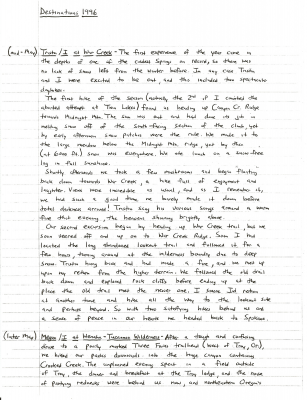 Destinations 1996
(mid-May) Trista / I at Wir Creek - The first experience of the year came in
the depths of one of the coldest Springs on record, so there was
no lack of snow left from the winter before. In any case Trista
and I were excited to be out, and this included two spectacular
dayhikes.
The first hike of the season (actually the 2nd if I counted the
aborted attempt at Two Lakes) found us heading up Canyon Cr. Ridge
towards Midnight Mtn. The sun was out and had done its job in
melting snow off of the south-facing section of the climb, yet
by early afternoon snow patches were the rule. We made it to
the large meadow below the Midnight Mtn. ridge, yet by then
(at 6000 ft.) snow was everywhere. We ate lunch on a snow-free
log in full sunshine.
Shortly afterwards we took a few mushrooms and began floating
back down towards Wir Creek, a trip full of enjoyment and
laughter. Views were incredible as usual, and as I remember it,
we had such a good time we barely made it down before
total darkness arrived! Trista sang her various songs around a warm
fire that evening, the heavens shining brightly above.
Our second excursion began by heading up Wir Creek trail, but we
soon veered off and up on to Wir Creek Ridge. Soon I had
reached the long abandoned lookout trail and followed it for a
few hours, turning around at the wilderness boundary due to deep
snow. Trista hung back and had made a fire, and we met up
upon my return from the higher terrain. We followed the old trail
back down and explored rock cliffs before ending up at the
place the old trail met the newer one. I swore I'd return
at another time and hike all the way to the lookout site
and perhaps beyond. So with two satisfying hikes behind us and
a sense of peace in our hearts we headed back to Spokane.
(later May) Megan / I at Wenaha-Tucannon Wilderness - After a tough and confusing
drive to a poorly marked Three Forks trailhead (west of Troy, Or.),
we hiked our packs downhill into the huge canyon containing
Crooked Creek. The unplanned evening spent in a field outside
of Troy, the dinner and breakfast at the Troy lodge and the noise
of partying rednecks were behind us now, and northeastern Oregon's